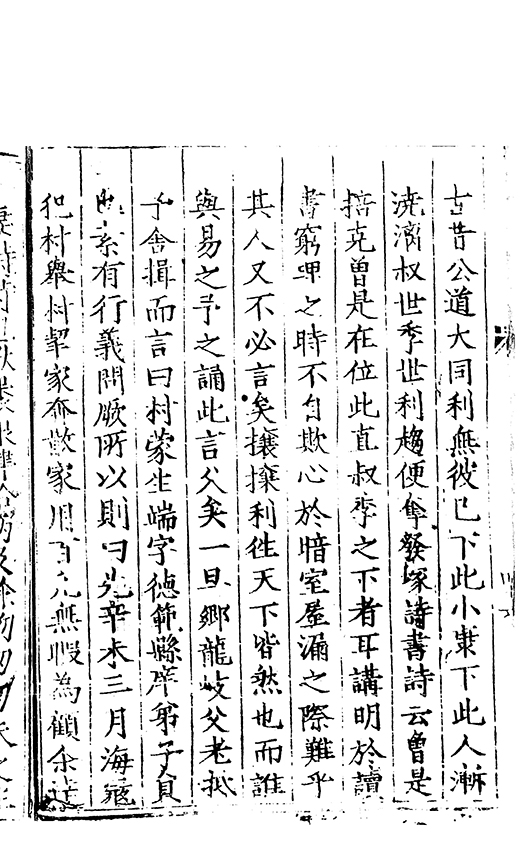 古昔公道大同利無彼已下此小康下此人漸
澆漓叔世季世利趨便隼發塚詩書詩云曾是
掊克曾是在位此直叔季之下者耳講明於讀
書窮理之時不自欺心於暗室屋漏之際難乎
其人又不必言矣攘攘利徃天下皆然也而誰
與易之予之誦此言父矣一旦鄉龍岐父老抵
予舍揖而言曰村蒙生端字徳範縣庠弟子員
素有行義問厥所以則曰先辛未三月海寇
犯村舉村挈家奔散家用百凡無暇為顧余